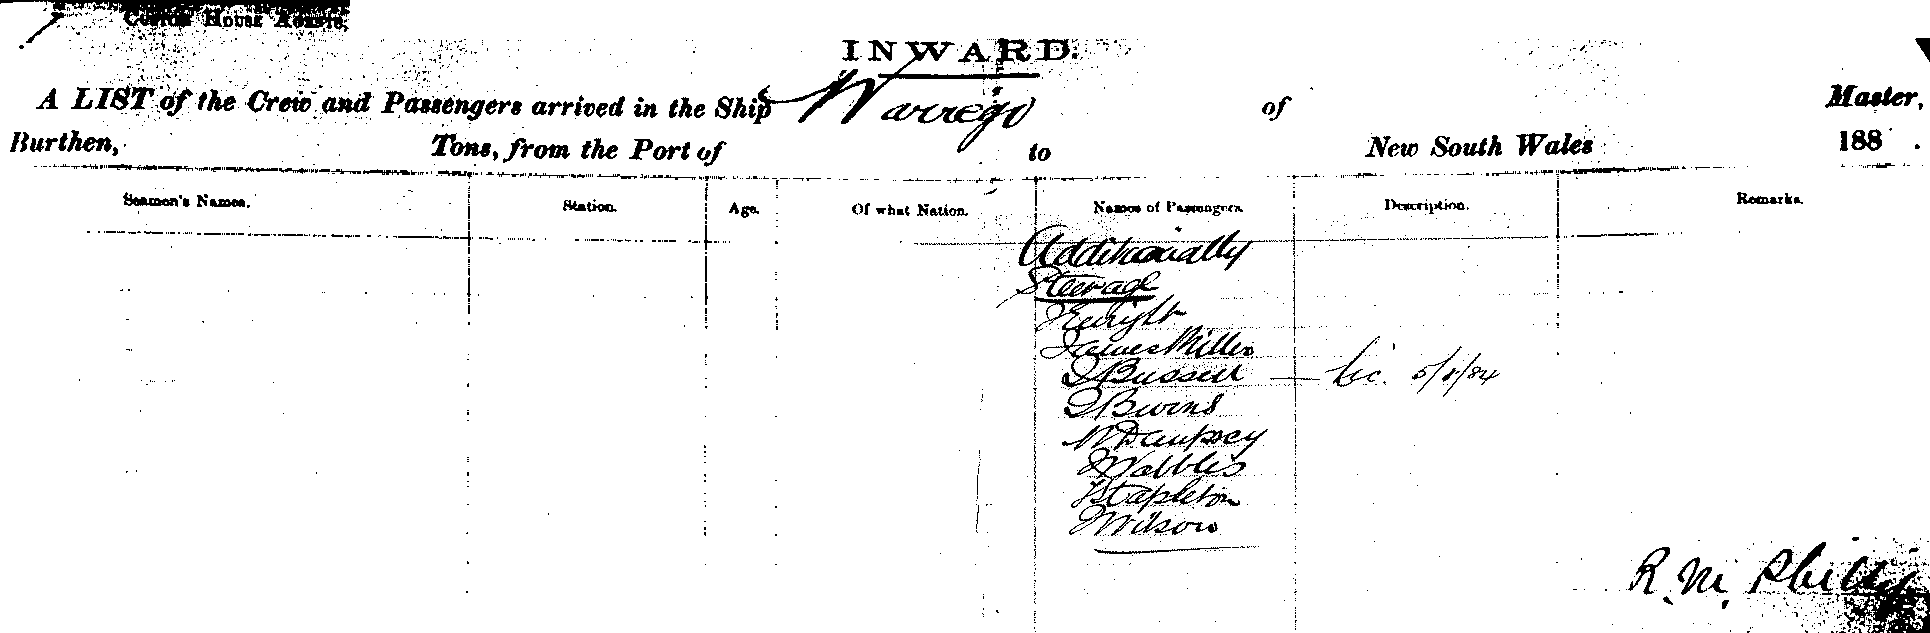 Custom House
INWARD.
A LIST of the Crew and Passengers arrived in the Ship Warrego of Master,
Burthen, Tons, from the Port of to New South Wales 188 .
Seamen's Names. Station. Age. Of what Nation. Names of Passengers. Description. Remarks.
Additionally
Steerage
James Miller
J Bussell — Lic. 5/8/84
J Bivens
W Dempsey
J Stapleton
J Wilson
R. M. Phillips